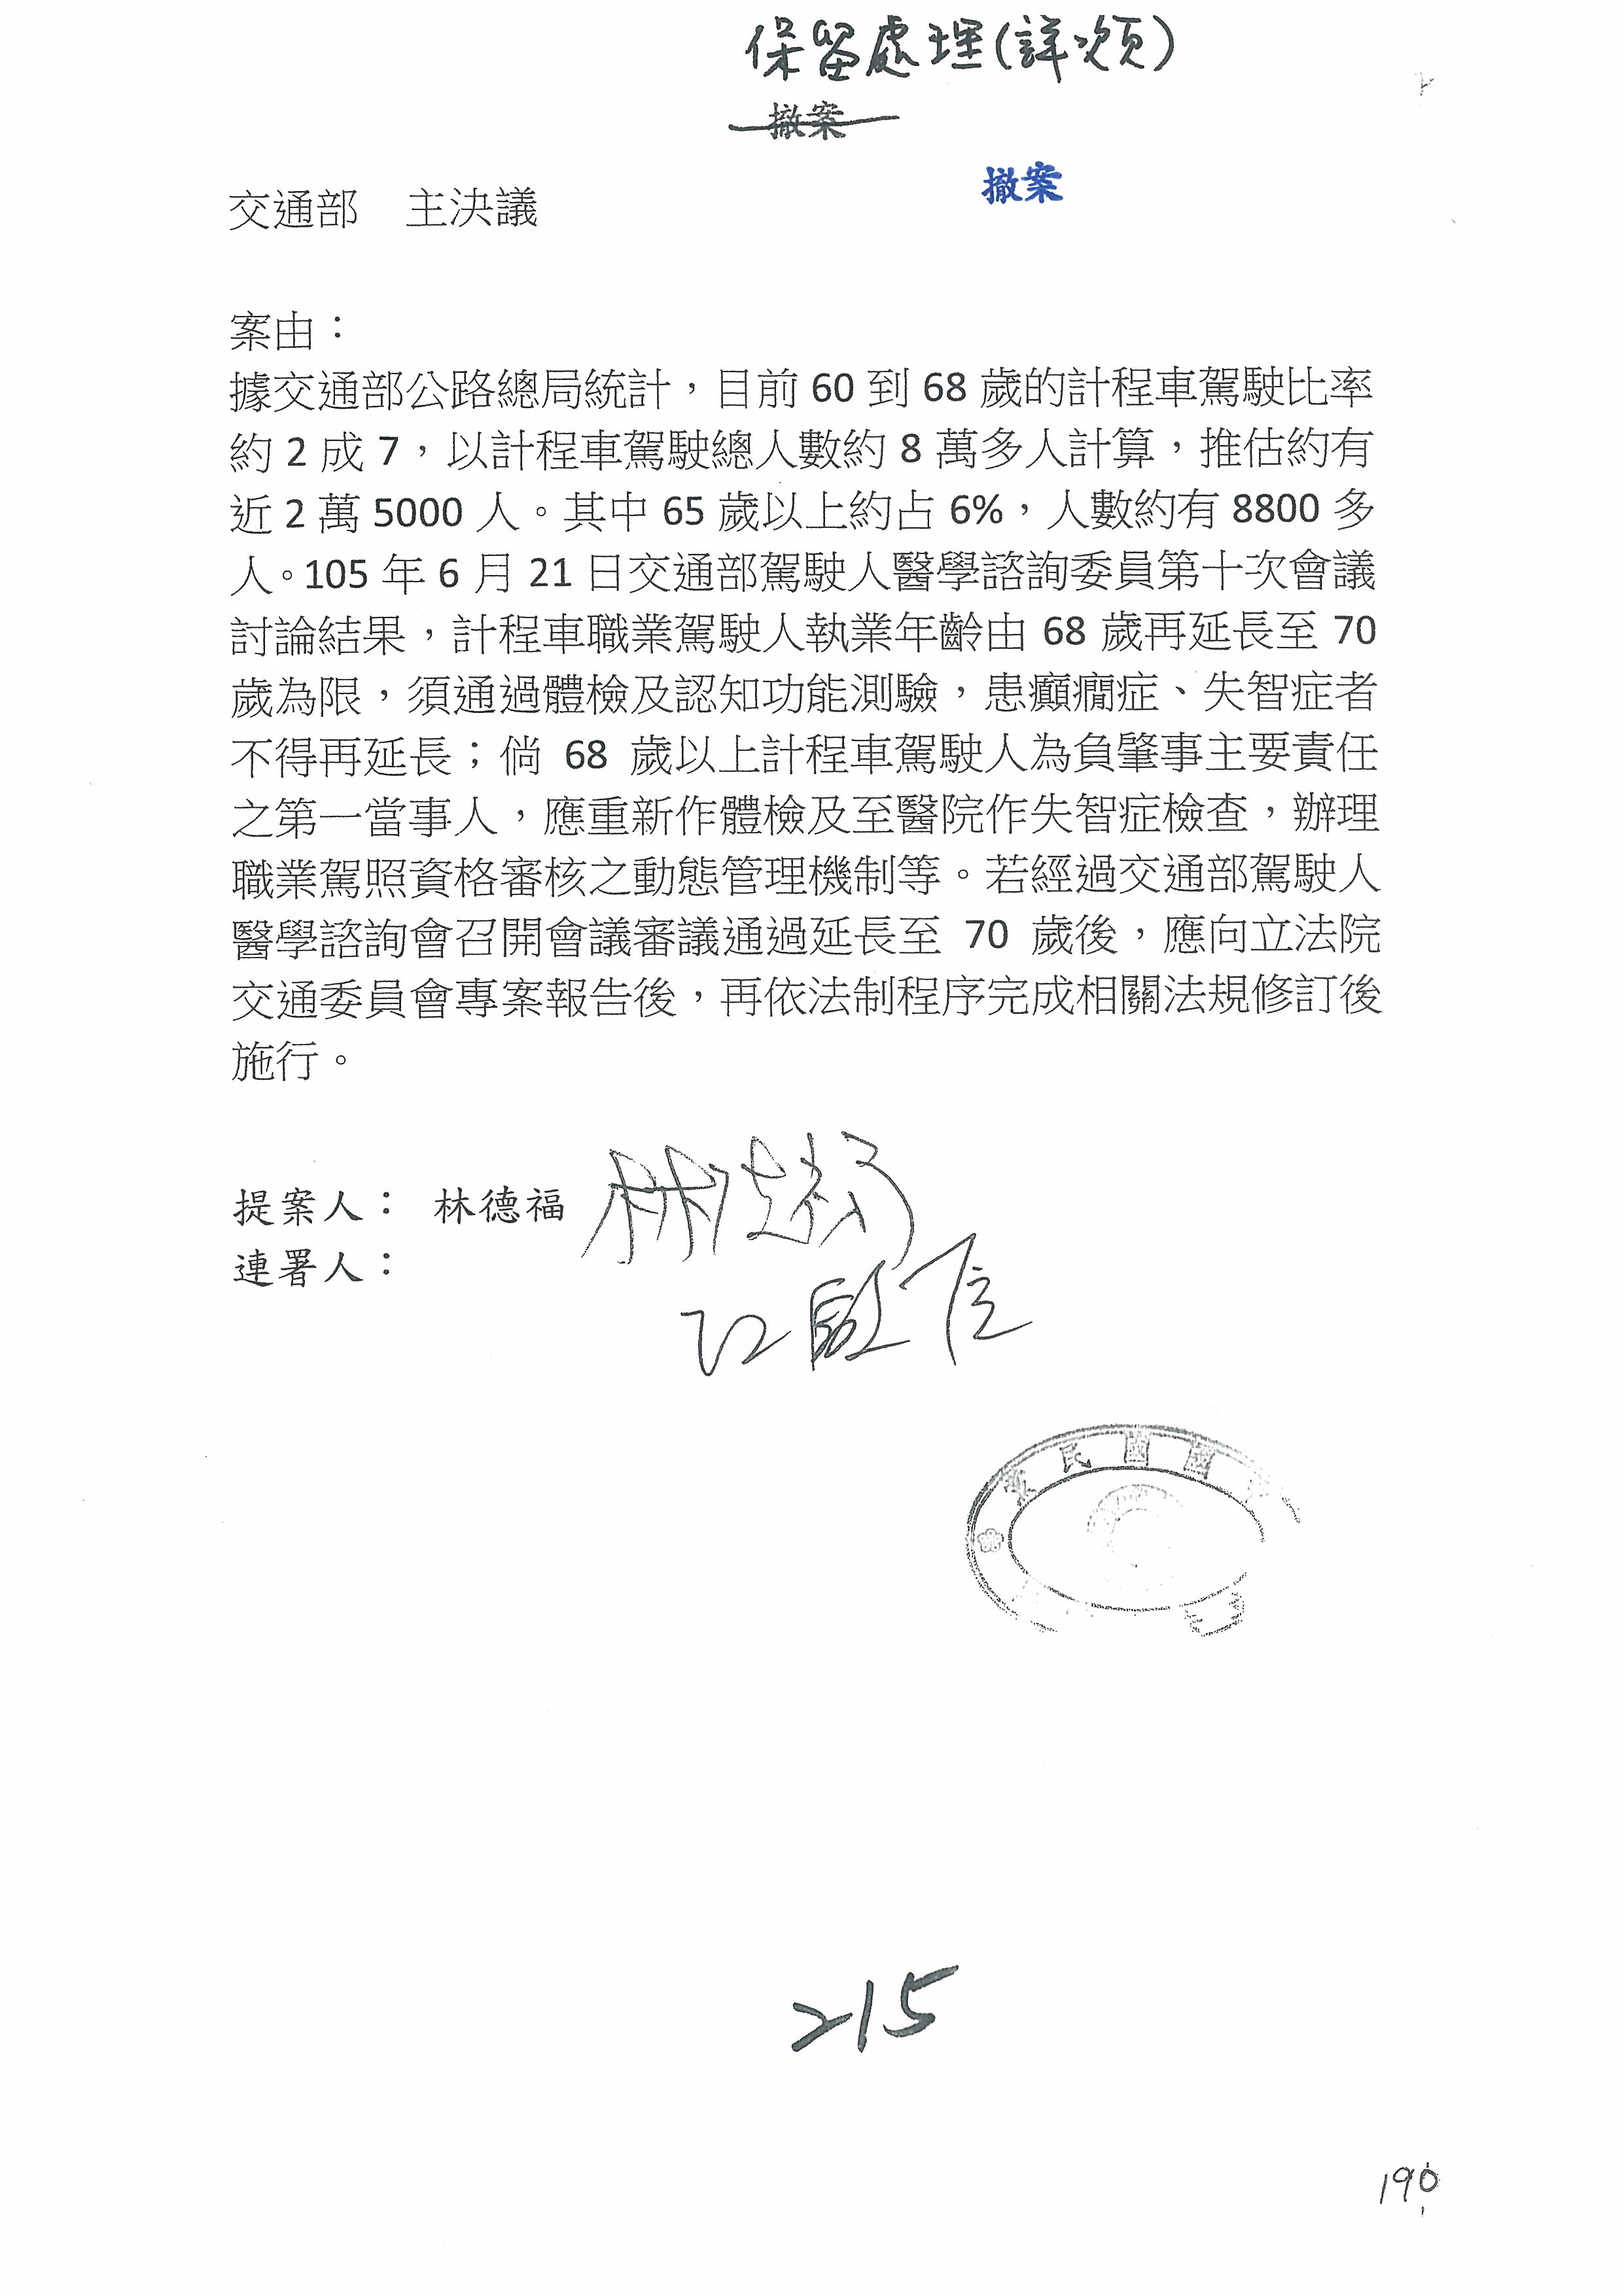 保留處理(詳次頁)
撤案
撤案
交通部 主決議
案由：
據交通部公路總局統計，目前 60 到 68 歲的計程車駕駛比率
約 2 成 7，以計程車駕駛總人數約 8 萬多人計算，推估約有
近 2 萬 5000 人。其中 65 歲以上約占 6%，人數約有 8800 多
人。105 年 6 月 21 日交通部駕駛人醫學諮詢委員第十次會議
討論結果，計程車職業駕駛人執業年齡由 68 歲再延長至 70
歲為限，須通過體檢及認知功能測驗，患癲癇症、失智症者
不得再延長；倘 68 歲以上計程車駕駛人為負肇事主要責任
之第一當事人，應重新作體檢及至醫院作失智症檢查，辦理
職業駕照資格審核之動態管理機制等。若經過交通部駕駛人
醫學諮詢會召開會議審議通過延長至 70 歲後，應向立法院
交通委員會專案報告後，再依法制程序完成相關法規修訂後
施行。
提案人： 林德福 林德福
連署人：
江啟臣
民國
215
190